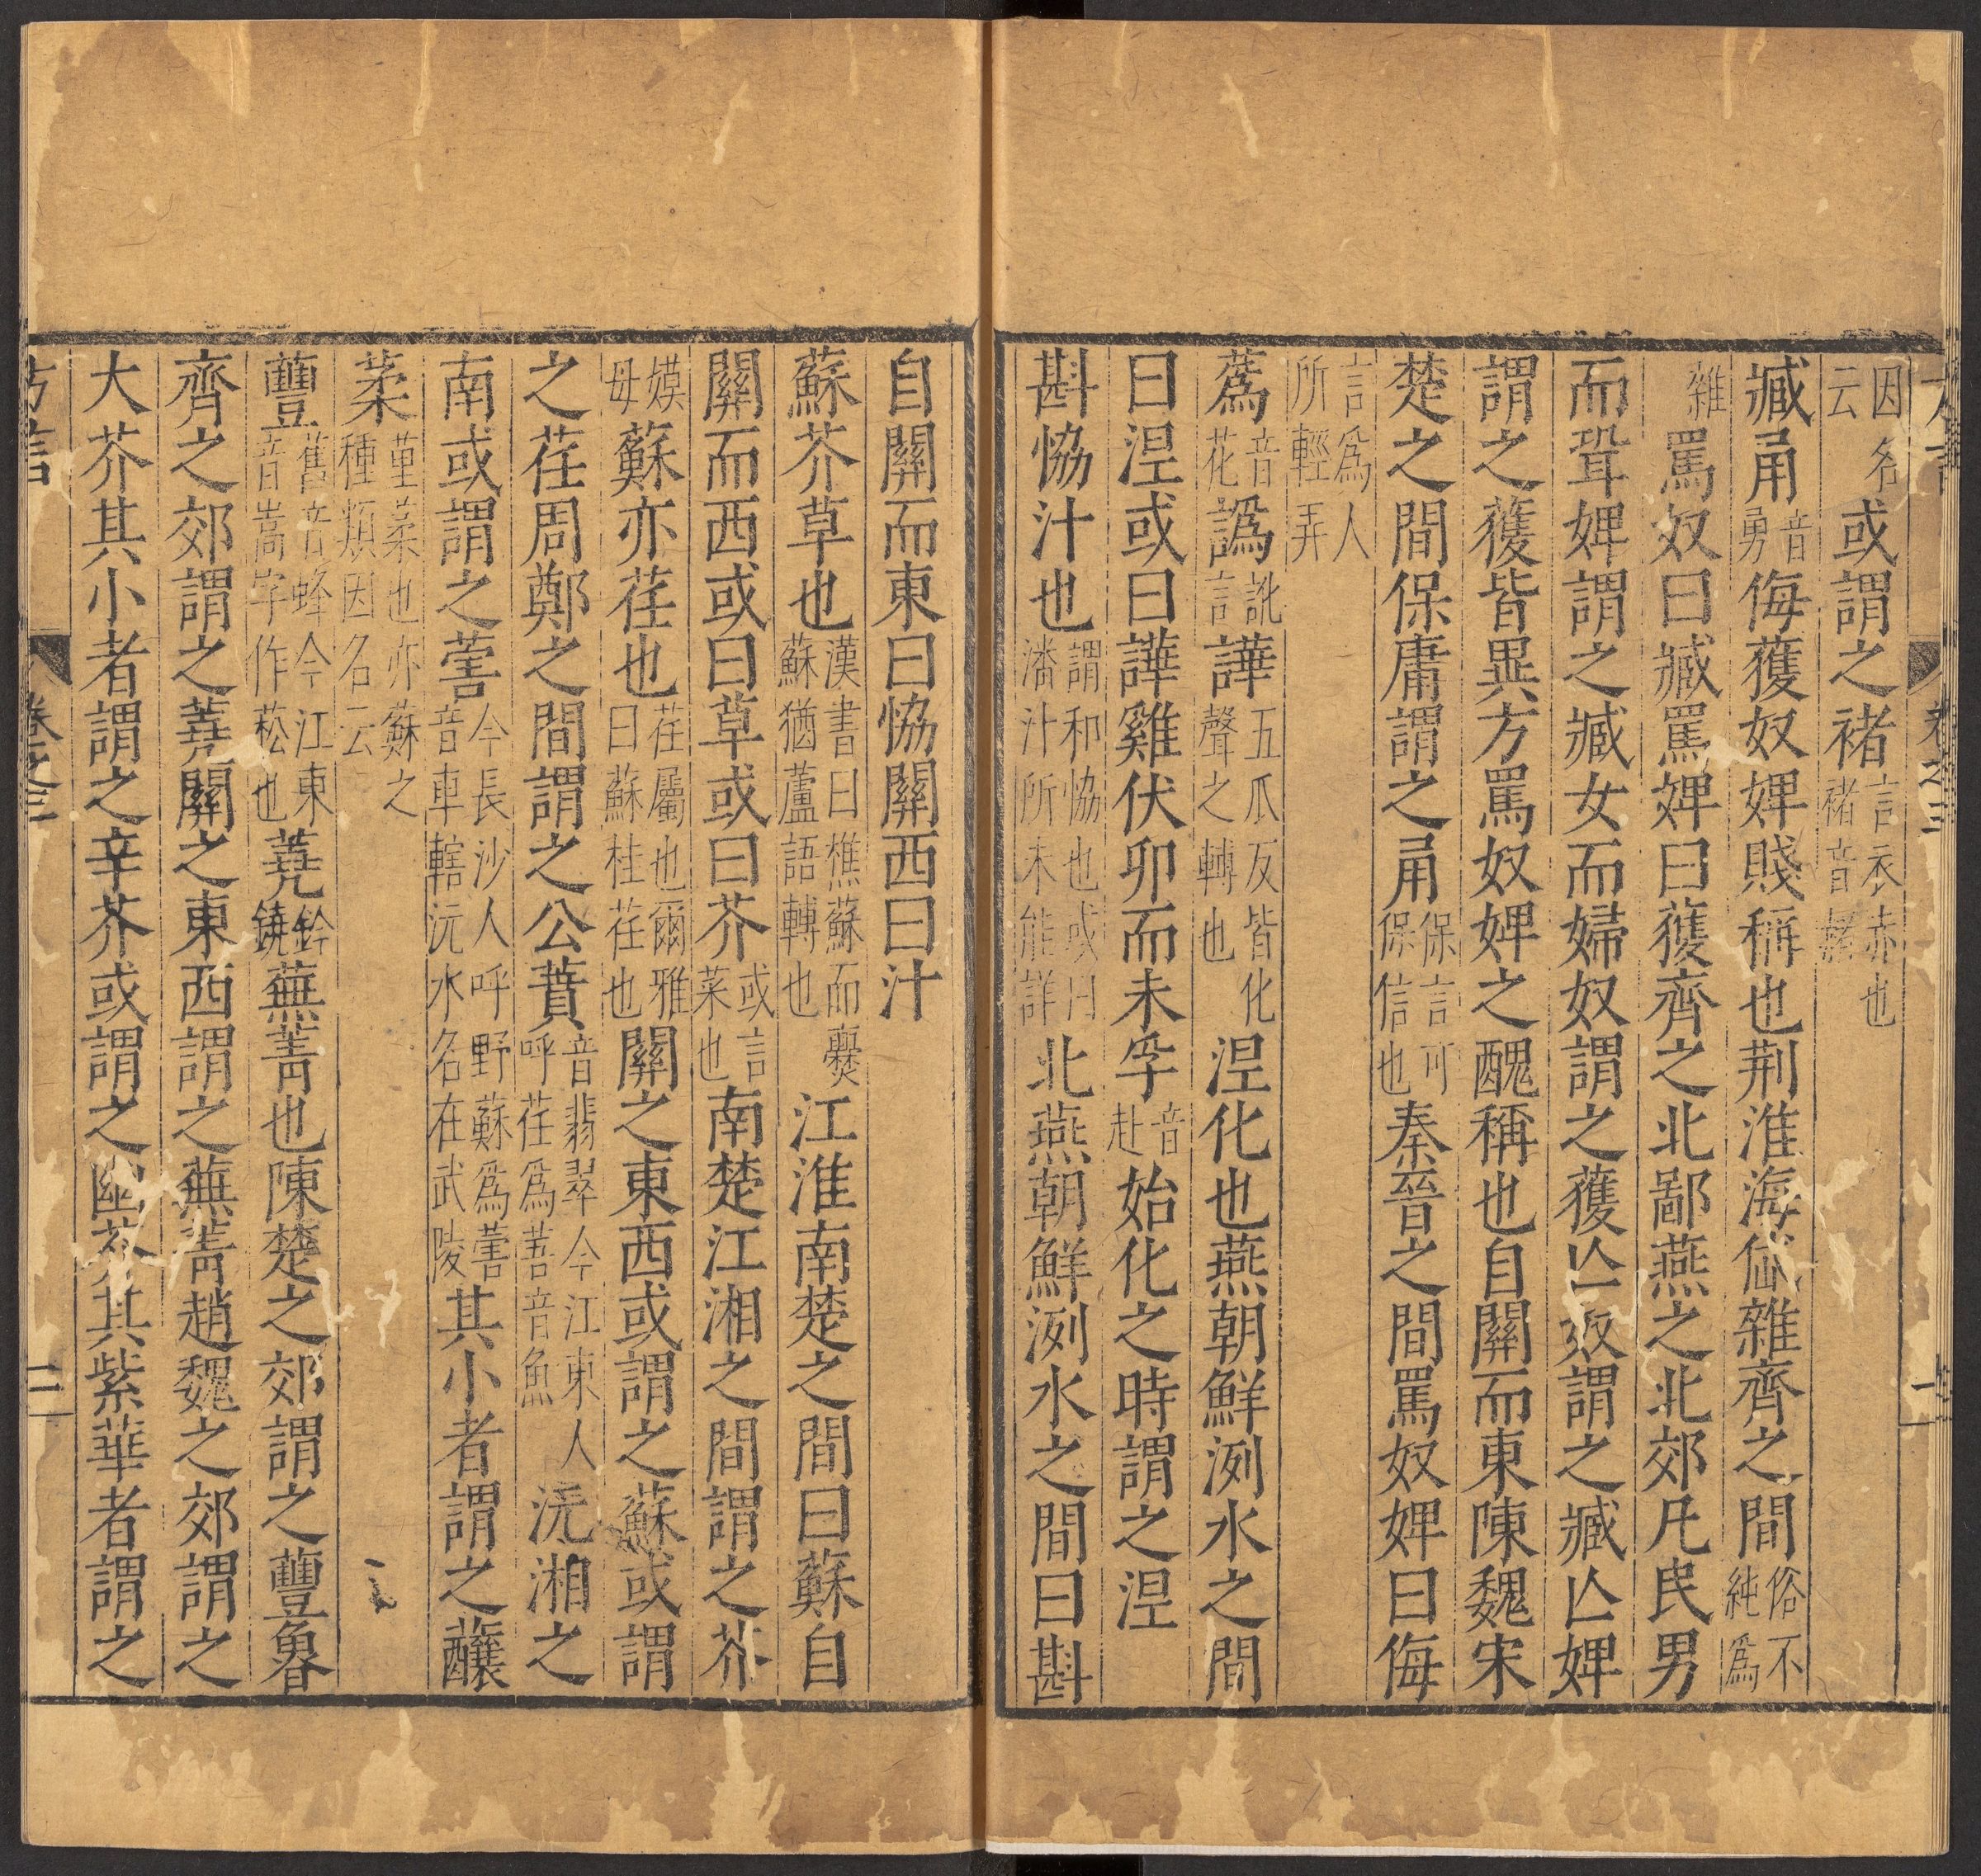 方言 卷之三 二
因名云或謂之褚言衣赤也褚音赭
臧甬音勇侮獲奴婢賤稱也荆淮海岱雜齊之間俗不純爲
雜罵奴曰臧罵婢曰獲齊之北鄙燕之北郊凡民男
而聟婢謂之臧女而婦奴謂之獲亾奴謂之臧亾婢
謂之獲皆異方罵奴婢之醜稱也自關而東陳魏宋
楚之間保庸謂之甬保言可保信也秦晉之間罵奴婢曰侮
言爲人所輕弄
蔿音花譌訛言譁五瓜反皆化聲之轉也涅化也燕朝鮮洌水之間
曰涅或曰譁雞伏卯而未孚音赴始化之時謂之涅
斟恊汁也謂和恊也或曰潘汁所未能詳北燕朝鮮洌水之間曰斟
自關而東曰恊關西曰汁
蘇芥草也漢書曰樵蘇而爨蘇猶蘆語轉也江淮南楚之間曰蘇自
關而西或曰草或曰芥或言菜也南楚江湘之間謂之芥
嫫母蘇亦荏也荏屬也爾雅曰蘇桂荏也關之東西或謂之蘇或謂
之荏周鄭之間謂之公蕡音翡翠今江東人呼荏爲䓊音魚沅湘之
南或謂之䔬今長沙人呼野蘇爲䔬音車轄沅水名在武陵其小者謂之釀
葇堇葇也亦蘇之種類因名云
蘴舊音蜂今江東音嵩字作菘也蕘鈴鐃蕪菁也陳楚之郊謂之蘴魯
齊之郊謂之蕘關之東西謂之蕪菁趙魏之郊謂之
大芥其小者謂之辛芥或謂之幽芥其紫華者謂之
方言 卷之三 三